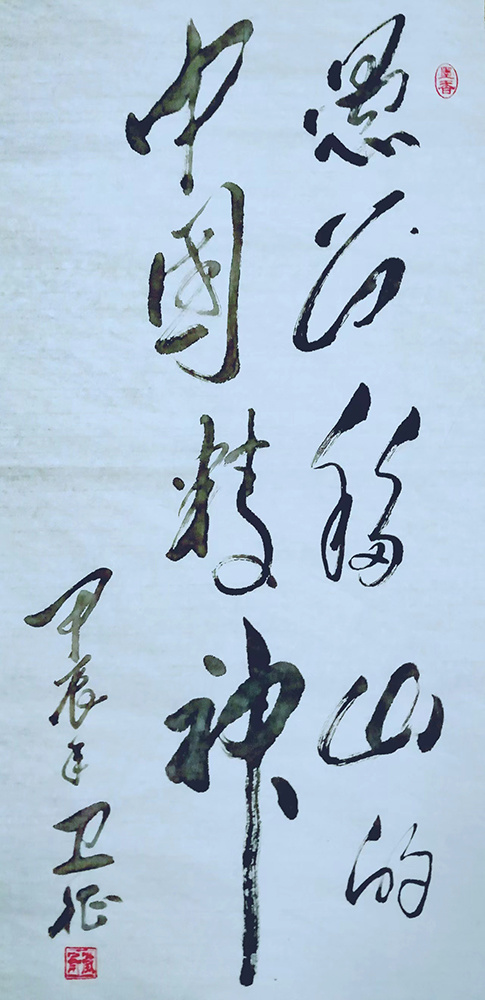 愚公移山的
中国精神
甲辰年 卫征
墨香